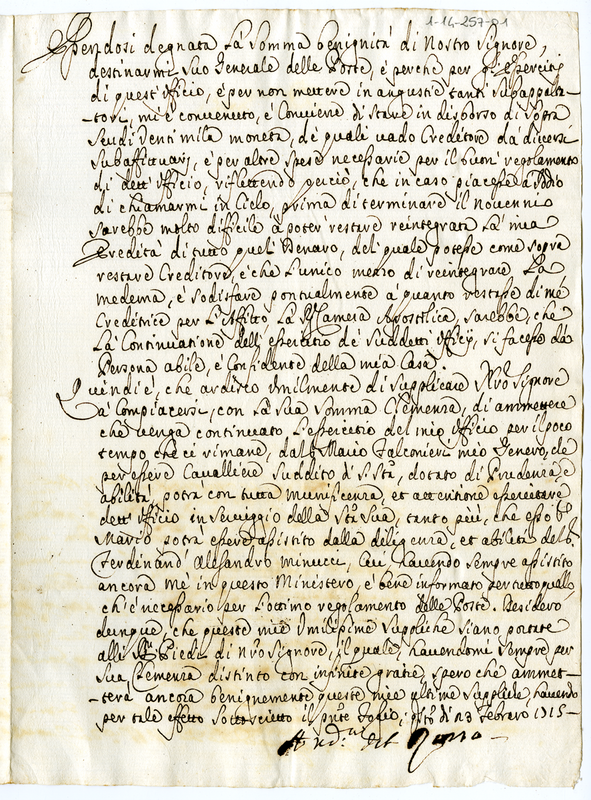 1-14-257-01
Essendosi degnata la somma benignità di Nostro Signore,
destinarmi suo Generale delle Poste, e perche per gl'esercitij
di quest'Officio, e per non mettere in angustie tanti subappalta-
-tori, mi è convenuto, e conviene di stare in disborso di sopra
scudi venti mila moneta, de quali vado Creditore da diversi
subaffittuarij, e per altre spese necessarie per il buon regolamento
di dett'Officio, riflettendo perciò, che in caso piacesse a Iddio
di chiamarmi in Cielo, prima di terminare il novennio
sarebbe molto difficile à poter restare reintegrata la mia
Eredità di tutto quel Denaro, del quale potesse come sopra
restare Creditore, e che l'unico mezzo di reintegrare la
medema, e sodisfare pontualmente à quanto restasse di me
Creditrice per l'Affitto la Camera Apostolica, sarebbe, che
la Continuatione dell'esercitio de suddetti Officij, si facesse da
Persona abile, e Confidente della mia Casa.
Quindi è, che ardisco umilmente di supplicare Nro Signore
à Compiacersi, con la sua somma Clemenza, di ammettere
che venga continuato l'essercitio del mio Officio per il poco
tempo che ci rimane, dal Marco Falconieri mio Genero, che
per essere Cavalliere suddito di S. Stà, dotato di Prudenza, e
abilità, potrà con tutta munificenza, et attentione esercitare
dett'Officio in servigio della Stà Sua, tanto più, che esso
Marco potrà essere assistito dalla diligenza, et abilità del
Ferdinand' Alesandro Minucci, havendo sempre assistito
ancora me in questo Ministero, e bene informato per tutto quello
ch'è necessario per l'ottimo regolamento delle Poste. Desidero
dunque, che queste mie Umilissime suppliche siano portate
alli Piedi di Nro Signore, il quale, havendomi sempre per
sua Clemenza distinto con infinite gratie, spero che ammet-
-terà ancora benignamente queste mie ultime suppliche, havendo
per tale effetto sottoscritto il pnte foglio, questo di 23 Febraro 1715-